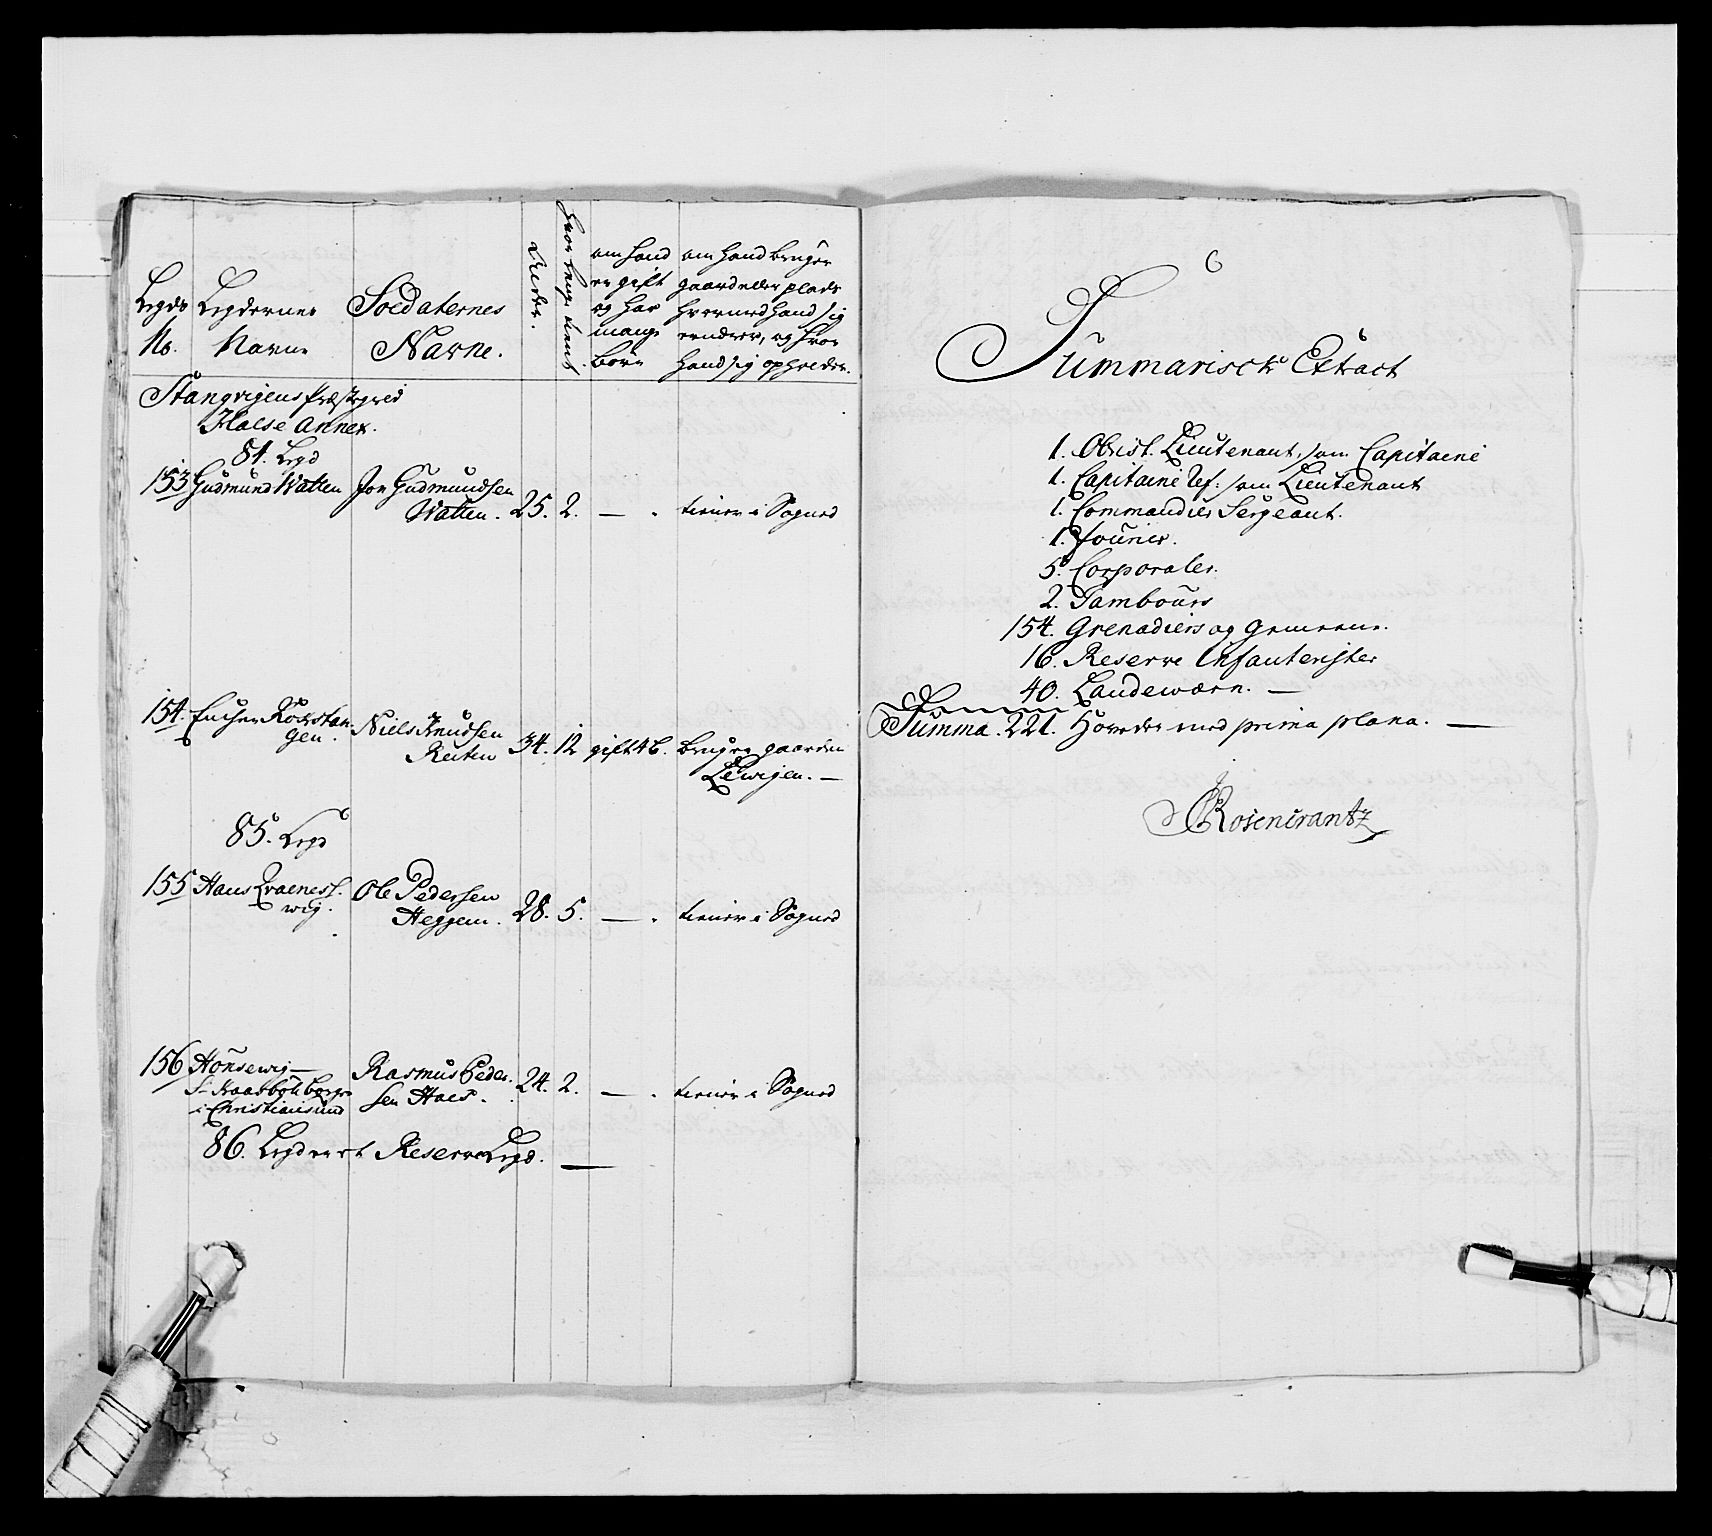 Legds No.
Legdernes Navne
Soldaternes Navne.
Alder.
hvor lenge tient
om hand er gift og har mange børn
om hand bruger gaard eller plads hvormed hand sig ernærer, og hvor hand sig opholder.
Stangvigens Præstegield
Halse Annex.
84. Legd
153 Gudmund Watten Jon Gudmundsen
Watten. 25. 2. — . tiener i Sogned
154. Encher Rodstan-
gen. Niels Knudsen
Reiten 34. 12 gift 4 b. bruger gaarden
Lewigen. —
85. Legd
155 Hans Qvaenes f.
wig. Ole Pedersen
Heggem. 28. 5. — . tiener i Sogned
156 Honsewig —
i Christiansund
Rasmus Peder-
sen Hals. 24. 2. — . tiener i Sogned
86. Legd er et Reserve Legd. —
Summarisck Extract
1. Obrist Lieutenant, som Capitaine
1. Capitaine Ref: som Lieutenant
1. Commandier Sergeant.
1. fourier.
5. Corporaler.
2. Tambours
154. Grenadiers og Gemeene.
16. Reserve Infanterister
40. Landeværn. —
Summa. 221. Hoveder med prima plana. —
Rosencrantz